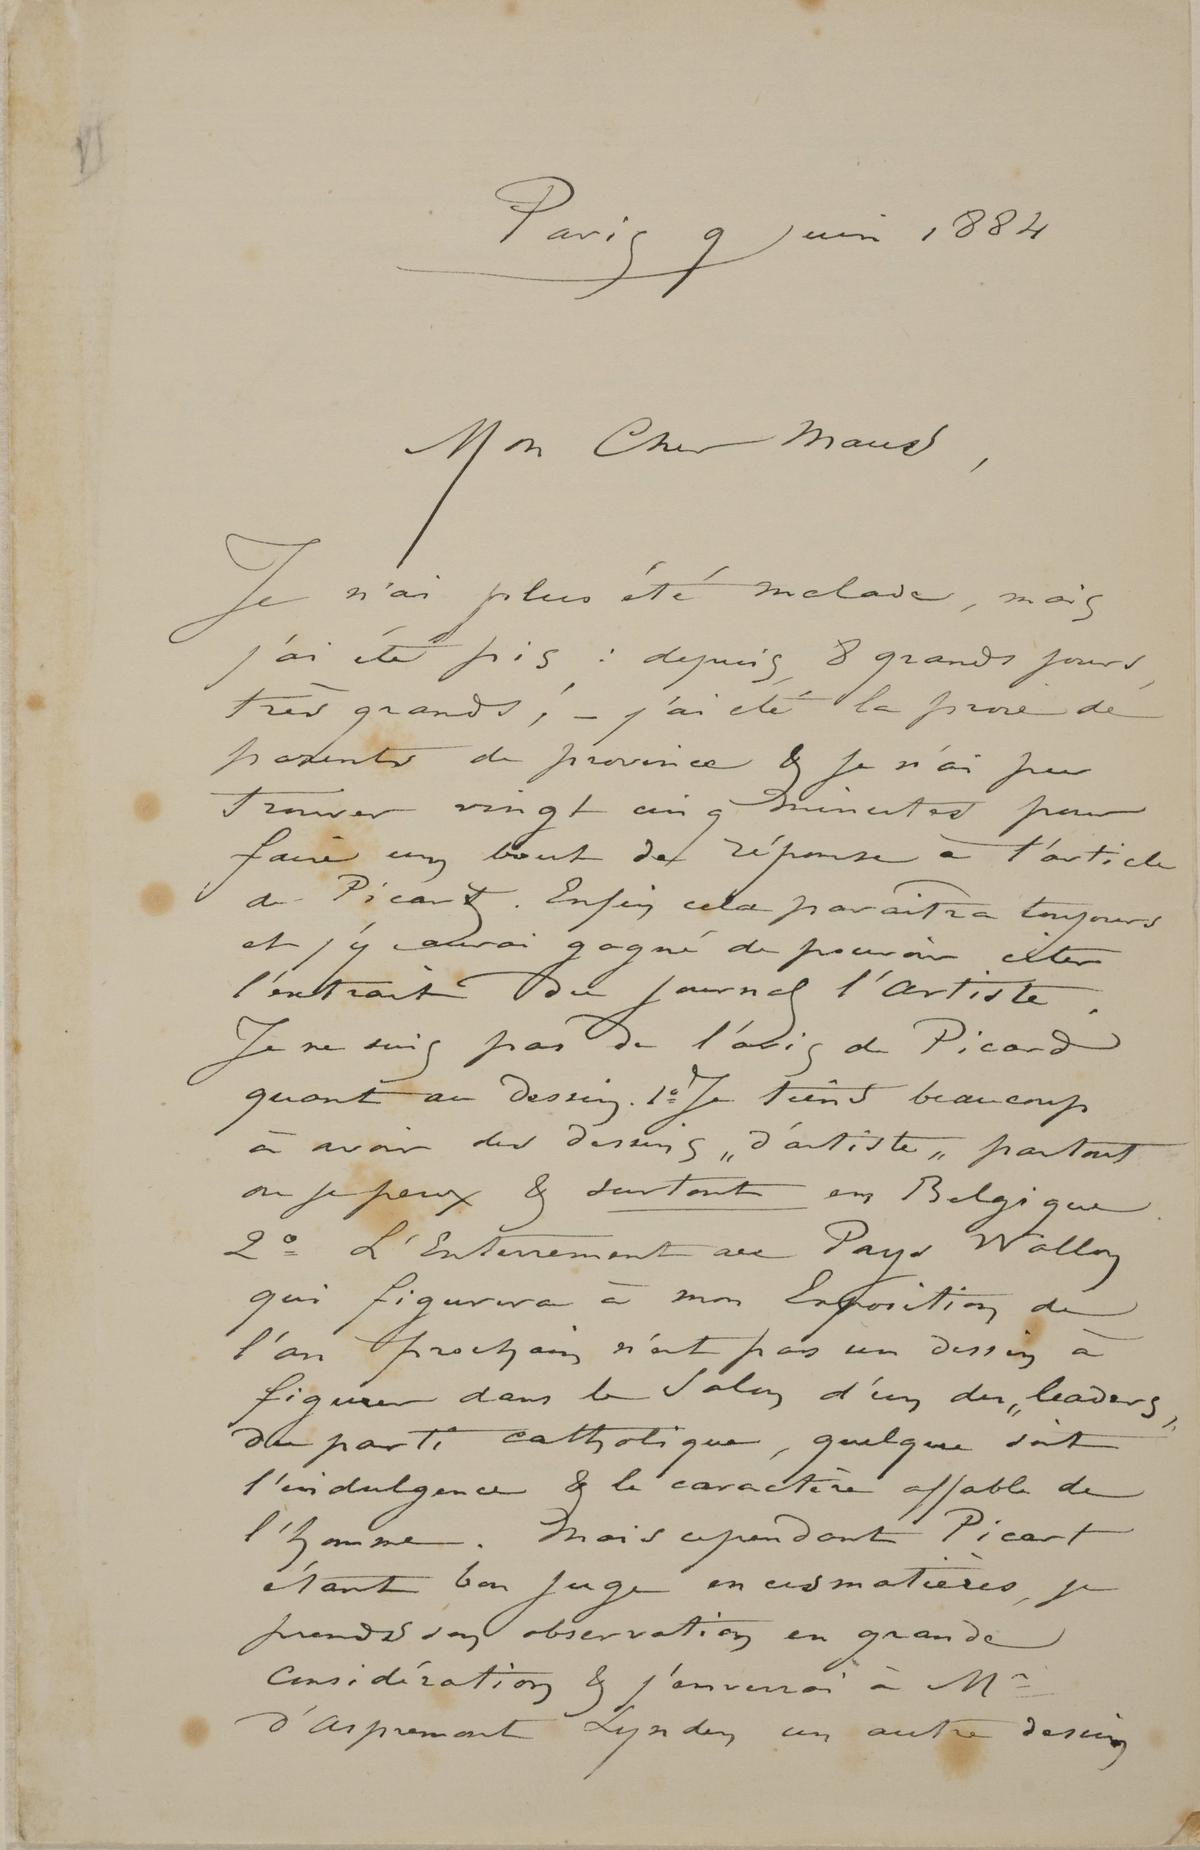 VI
Paris 9 Juin 1884
Mon Cher Maus,
Je n'ai plus été malade, mais
j'ai été pis : depuis 8 grands jours,
très grands ! – j'ai été la proie de
parents de province & je n'ai pu
trouver vingt cinq minutes pour
faire un bout de réponse à l'article
de Picard. Enfin cela paraîtra toujours
et j'y aurai gagné de pouvoir citer
l'extrait du journal l'Artiste.
Je ne suis pas de l'avis de Picard
quant au dessin. 1º Je tiens beaucoup
à avoir des dessins „d'artiste„ partout
ou je peux & surtout en Belgique
2º L'Enterrement au Pays Wallon
qui figurera à mon Exposition de
l'an prochain n'est pas un dessin à
figurer dans le Salon d'un des „leaders„
du parti catholique, quelque soit
l'indulgence & le caractère affable de
l'homme. Mais cependant Picart
étant bon juge en ces matières, je
prends son observation en grande
considération & j'enverrai à Mr
d'Aspremont Lynden un autre dessin